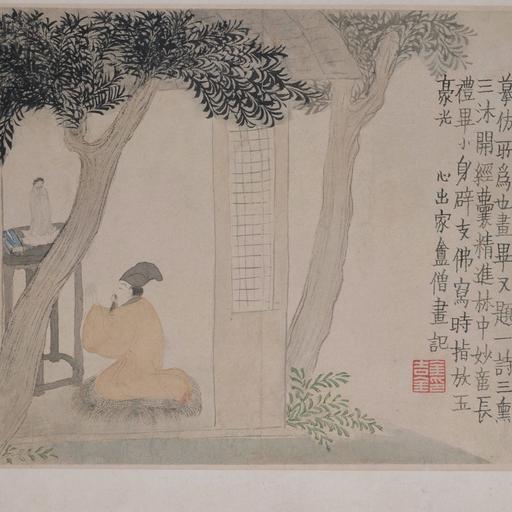 摹仿所為也畫畢又題一詩三熏
三沐開經囊精進林中妙長
禮畢小身辟支佛寫時指放五
豪光 心出家盦僧畫記